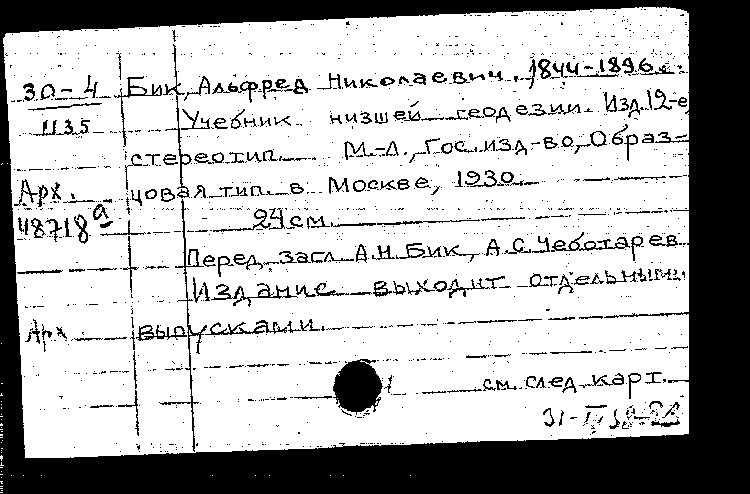 30-4 Бик, Альфред Николаевич. 1844-1896.
1135 Учебник низшей геодезии. Изд. 12-е,
стереотип. М.-Л., Гос. изд-во, Образ-
Арх. цовая тип. в Москве, 1930.
48718а 24 см.
Перед загл. А.Н. Бик, А.С. Чеботарев
Издание выходит отдельными
Арх выпусками.
см. след. карт.
31-IV